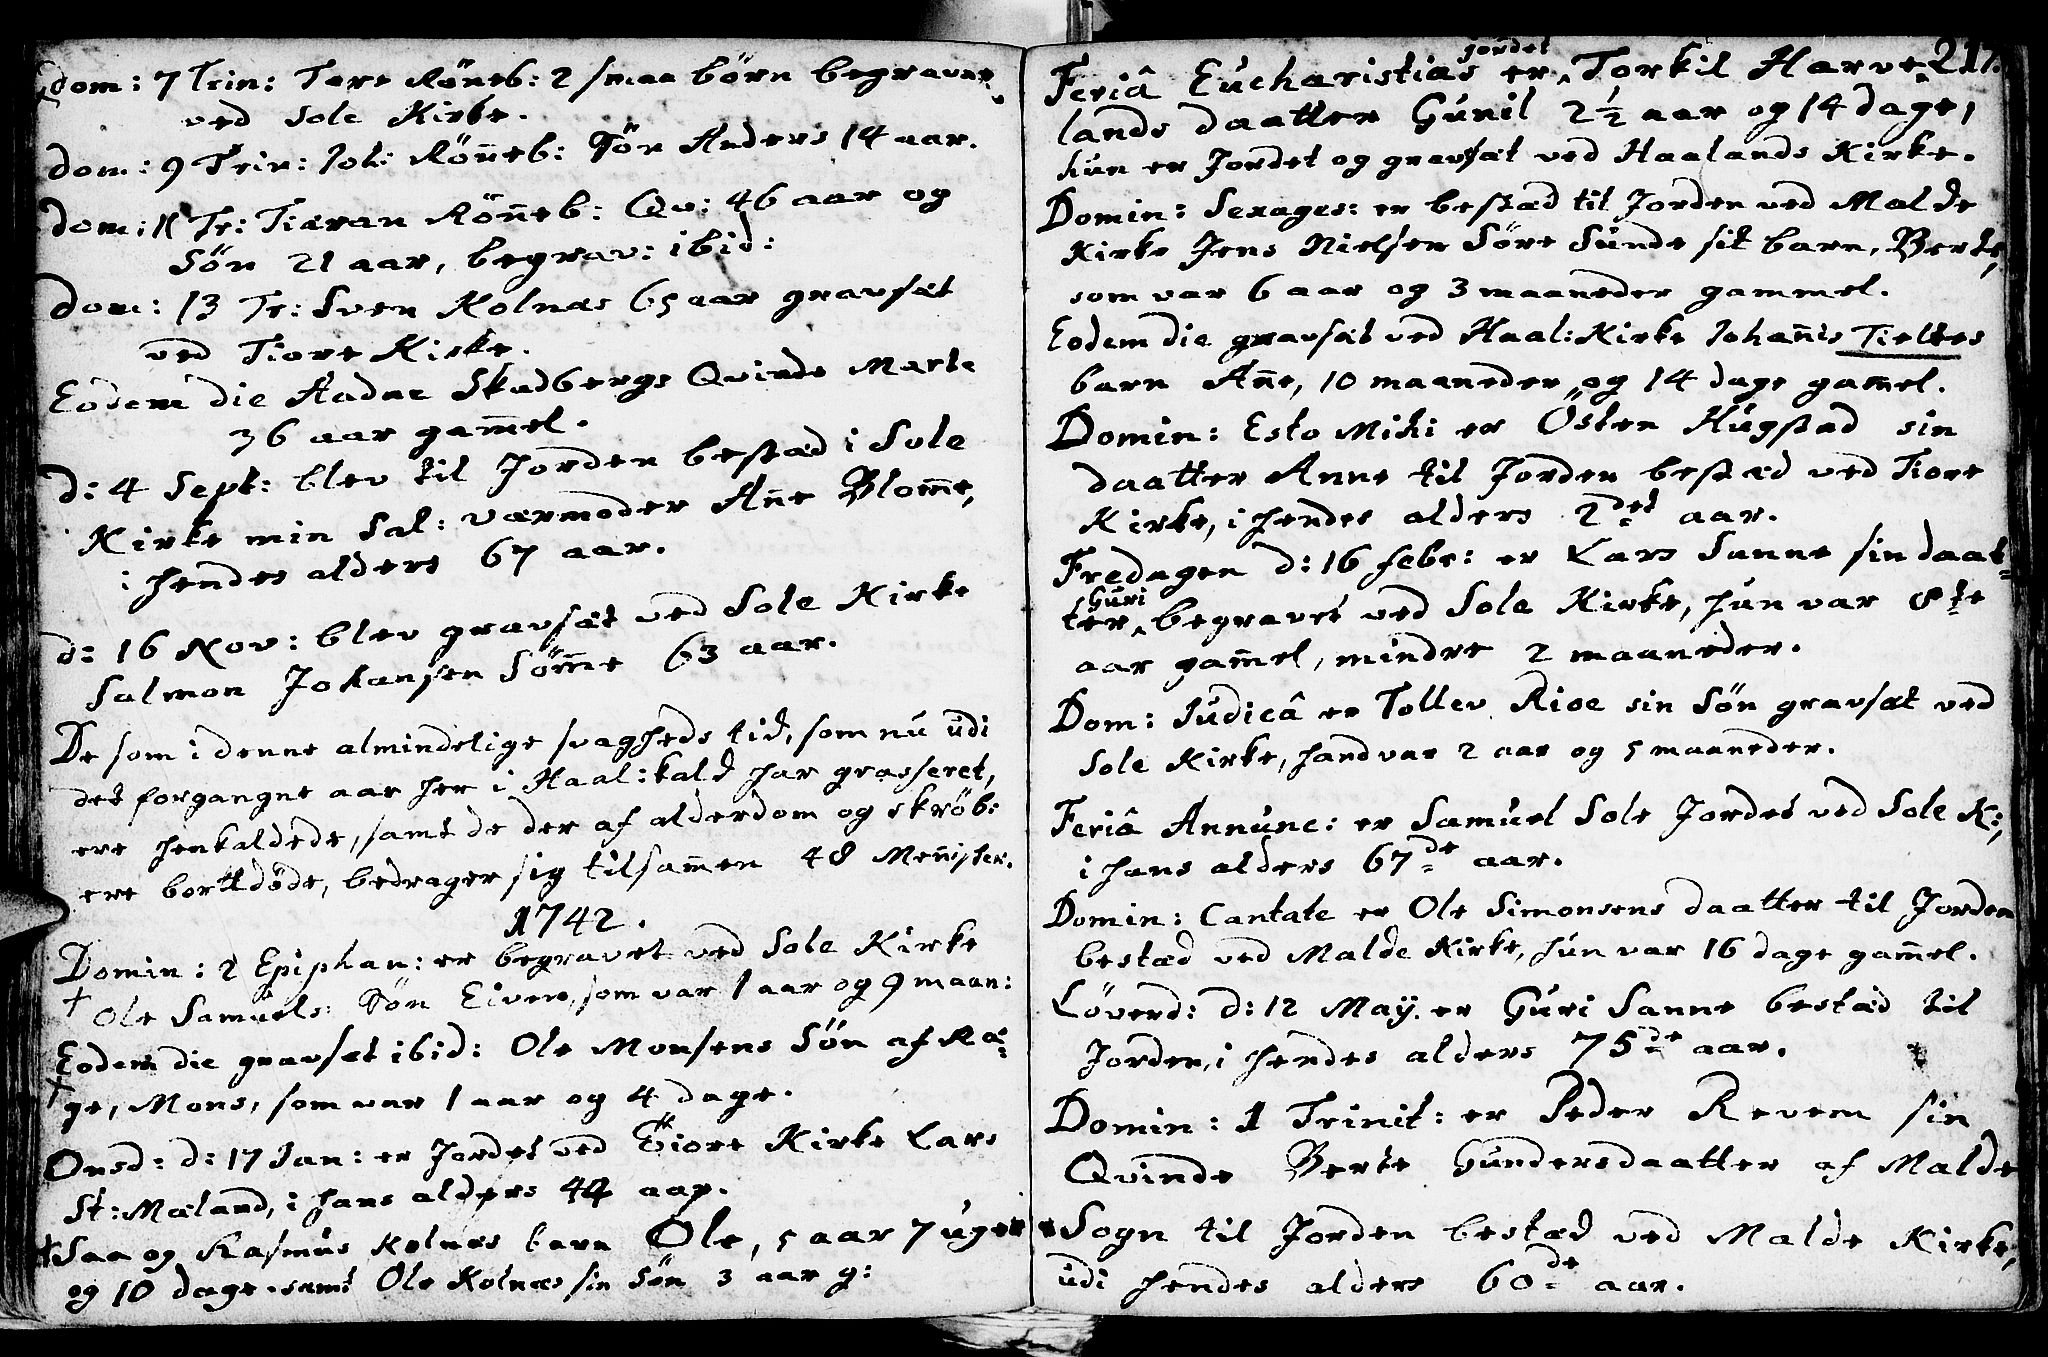 dom: 7 Trin: Tore Röneb: 2 smaa börn begravne
ved Sole Kirke.
dom: 9 Trin: Joh: Röñeb: Sön Anders 14 aar.
dom: 11 Tr: Tiæran Röñeb: Qv: 46 aar og
Sön 21 aar, begrav: ibid:
dom: 13 Tr: Sven Kolnæs 65 aar gravsæt
ved Tiore Kirke.
Eodem die Aadne Skadbergs Qvinde Marte
36 aar gam̃el.
d: 4 Sept: blev til Jorden bestæd i Sole
Kirke min Sal: Værmoder Añe Blom̃e,
i hendes alders 67 aar.
d: 16 Nov: blev gravsæt ved Sole Kirke
Salmon Johansen Söm̃e 63 aar.
De som i denne almindelige svagheds tid, som nu udi
det forgangne aar her i Haal: kald har grasseret,
ere henkaldede, samt de der af alderdom og skröb:
ere bortdöde, bedrager sig tilsam̃en 48 Meñisker.
1742.
Domin: 2 Epiphan: er begravet ved Sole Kirke
† Ole Samuels: Sön Eiven, som var 1 aar og 9 maan:
Eodem die gravsæt ibid: Ole Monsens Sön af Ræ-
† ge, Mons, som var 1 aar og 4 dage.
Onsd: d: 17 Jan: er Jordet ved Tiore Kirke Lars
St: Mæland, i hans alders 44 aar.
† Saa og Rasmus Kolnæs barn Ole, 5 aar 7 uger
og 10 dage. samt Ole Kolnæs sin Sön 3 aar g:
217.
Feriâ Eucharistias er ^jordet Torkil Harve-
lands daatter Gunil 2½ aar og 14 dage,
hun er Jordet og gravsæt ved Haalands Kirke.
Domin: Sexages: er bestæd til Jorden ved Malde
Kirke Jens Nielsen Söre Sunde sit barn, Berte,
som var 6 aar og 3 maaneder gammel.
Eodem die gravsæt ved Haal: Kirke Johañis Tieltes
barn Añe, 10 maaneder og 14 dage gam̃el.
Domin: Esto Mihi er Östen Hugstad sin
daatter Anne til Jorden bestæd ved Tiore
Kirke, i hendes alders 2det aar.
Fredagen d: 16 febr: er Lars Sanne sin daat-
ter ^Guri begravet ved Sole Kirke, hun var 8te
aar gam̃el, mindre 2 maaneder.
Dom: Judicâ er Tollev Rioe sin Sön gravsæt ved
Sole Kirke, hand var 2 aar og 5 maaneder.
Feriâ Annunc: er Samuel Sole Jordet ved Sole K:,
i hans alders 67de aar.
Domin: Cantate er Ole Simonsens daatter til Jorden
bestæd ved Malde Kirke, hun var 16 dage gam̃el.
Löverd: d: 12 Maÿ. er Guri Sanne bestæd til
Jorden, i hendes alders 75de aar.
Domin: 1 Trinit: er Peder Revem sin
Qvinde Berte Gundersdaatter af Malde
Sogn til Jorden bestæd ved Malde Kirke,
udi hendes alders 60de aar.